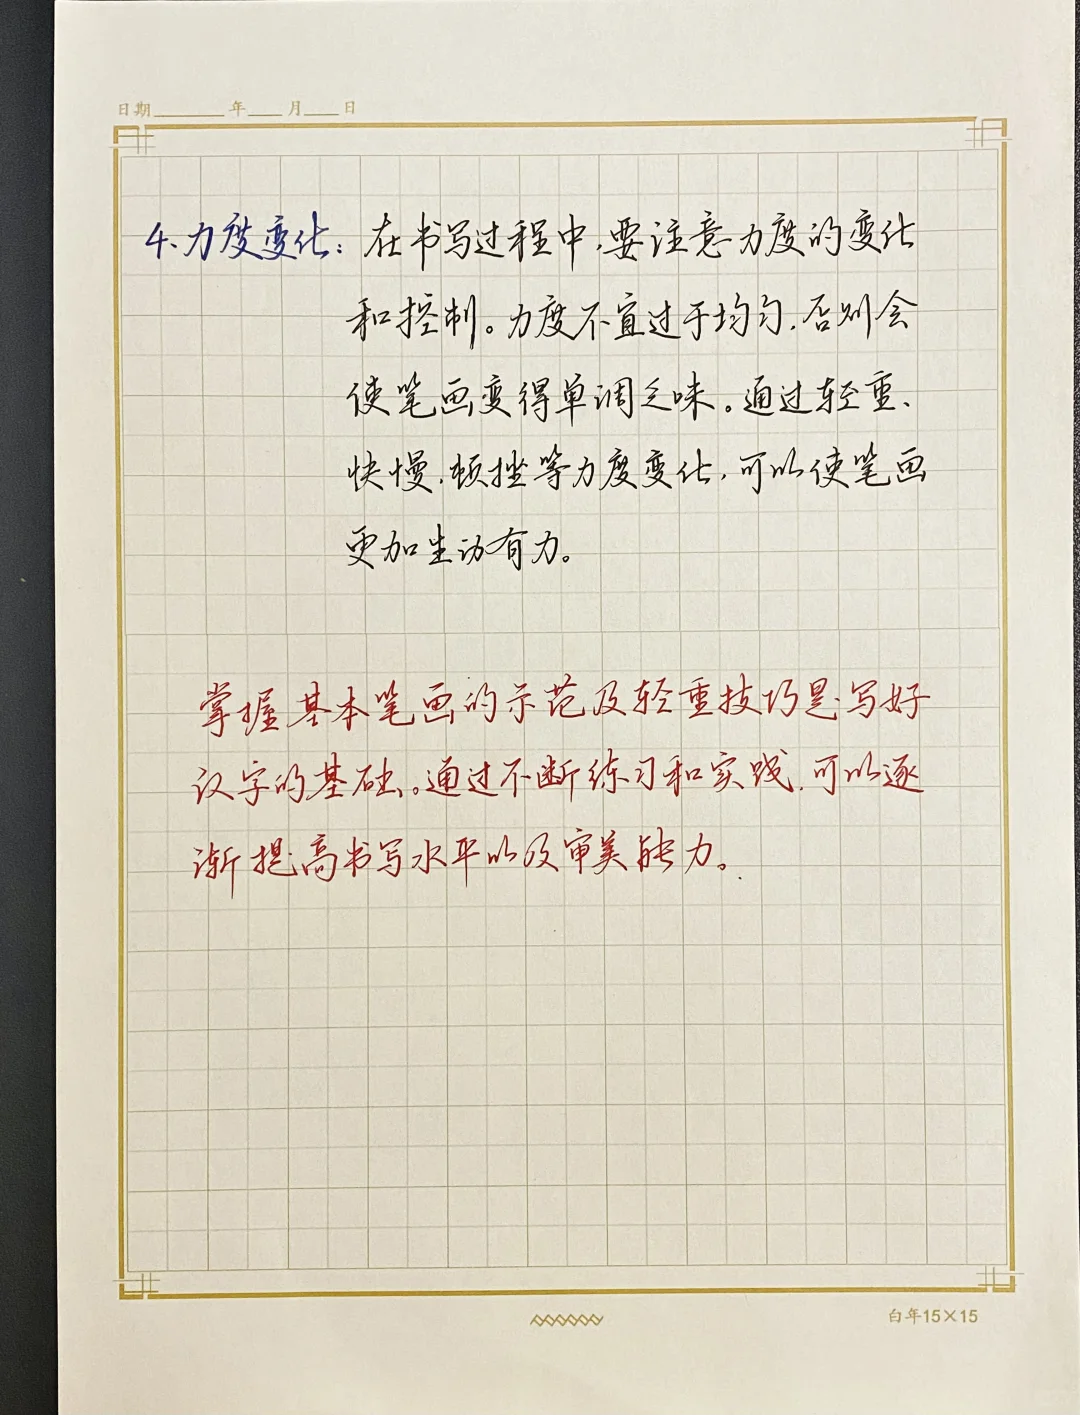 日期____年__月__日
4、力度变化：在书写过程中，要注意力度的变化
和控制。力度不宜过于均匀，否则会
使笔画变得单调乏味。通过轻重、
快慢、顿挫等力度变化，可以使笔画
更加生动有力。
掌握基本笔画的示范及轻重技巧是写好
汉字的基础。通过不断练习和实践，可以逐
渐提高书写水平以及审美能力。
白年15×15